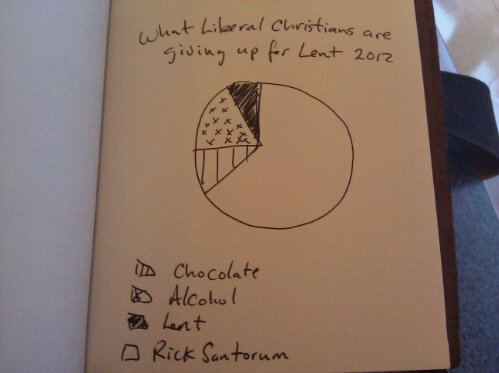 What Liberal Christians are
giving up for Lent 2012
Chocolate
Alcohol
Lent
Rick Santorum